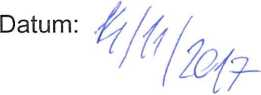 Datum: 14/11/2017